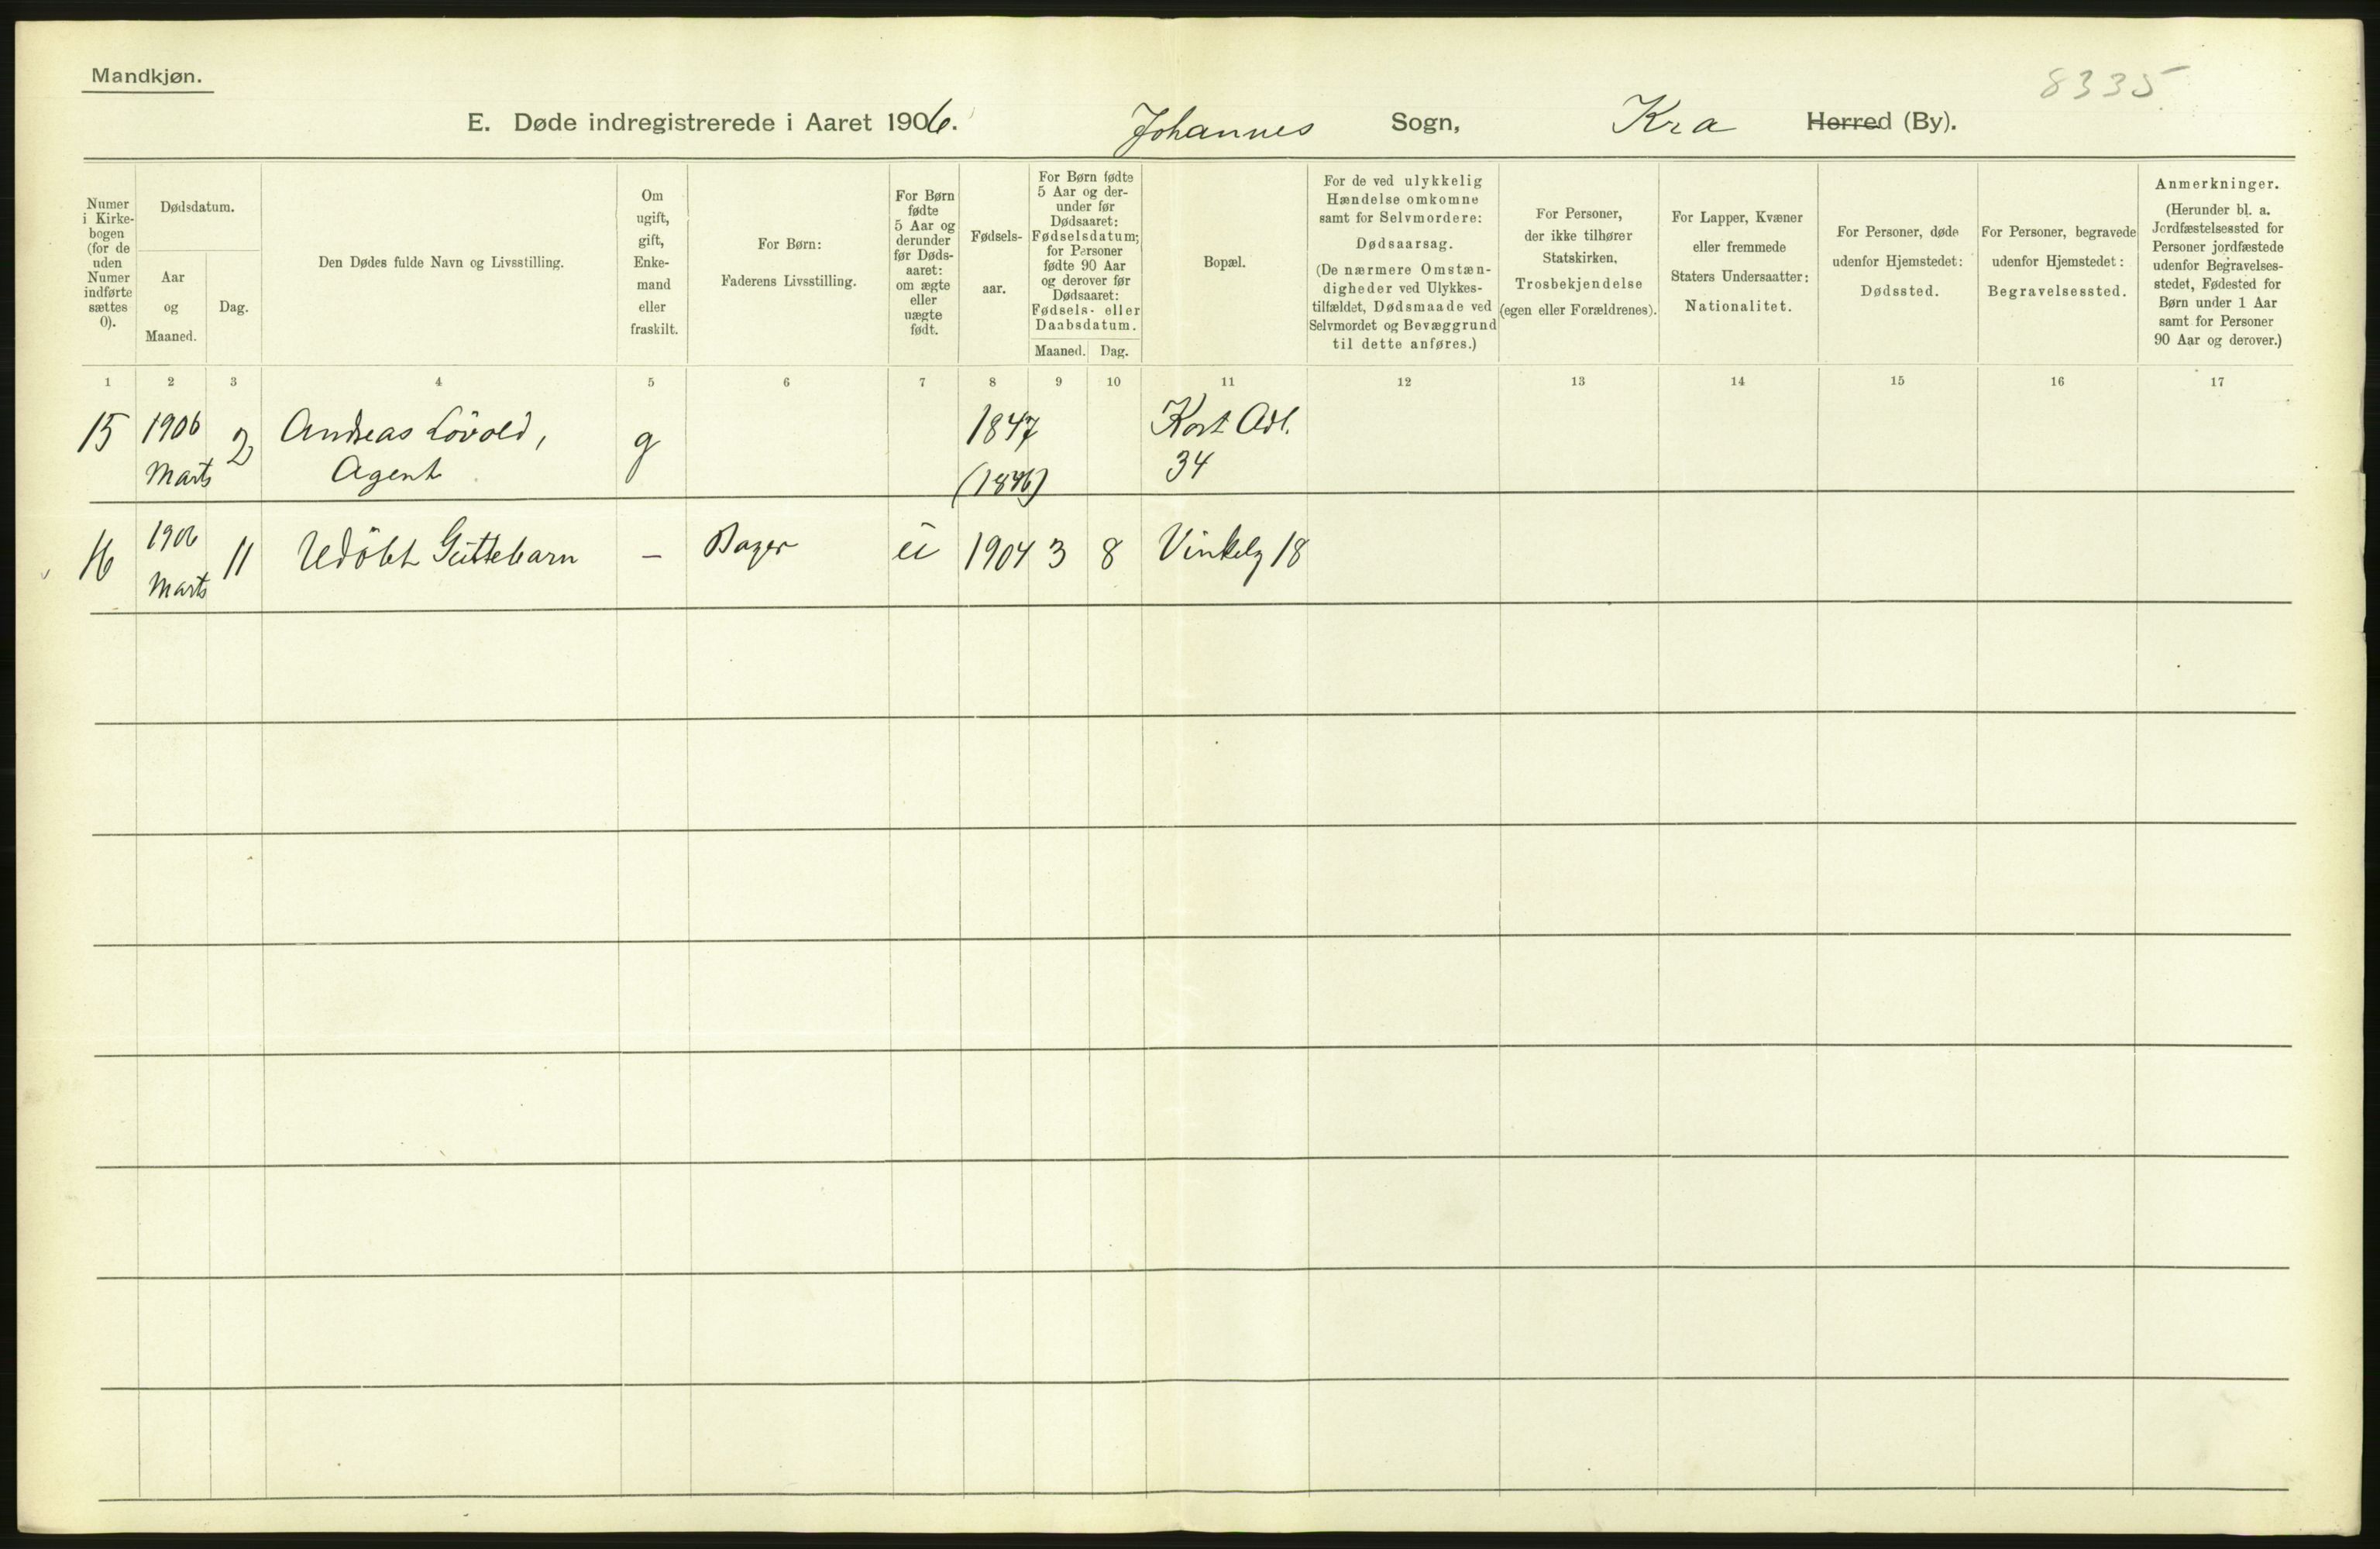 Mandkjøn.
8335.
E. Døde indregistrerede i Aaret 1906. Johannes Sogn, Kra Herred (By).
Numer i Kirkebogen (for de uden Numer indførte sættes 0).
Dødsdatum.
Aar og Maaned.
Dag.
Den Dødes fulde Navn og Livsstilling.
Om ugift, gift, Enkemand eller fraskilt.
For Børn: Faderens Livsstilling.
For Børn fødte 5 Aar og derunder før Dødsaaret: om ægte eller uægte født.
Fødselsaar.
For Børn fødte 5 Aar og derunder før Dødsaaret: Fødselsdatum; for Personer fødte 90 Aar og derover før Dødsaaret: Fødsels- eller Daabsdatum.
Maaned. Dag.
Bopæl.
For de ved ulykkelig Hændelse omkomne samt for Selvmordere: Dødsaarsag. (De nærmere Omstændigheder ved Ulykkestilfældet, Dødsmaade ved Selvmordet og Bevæggrund til dette anføres.)
For Personer, der ikke tilhører Statskirken, Trosbekjendelse (egen eller Forældrenes).
For Lapper, Kvæner eller fremmede Staters Undersaatter: Nationalitet.
For Personer, døde udenfor Hjemstedet: Dødssted.
For Personer, begravede udenfor Hjemstedet: Begravelsessted.
Anmerkninger. (Herunder bl. a. Jordfæstelsessted for Personer jordfæstede udenfor Begravelsesstedet, Fødested for Børn under 1 Aar samt for Personer 90 Aar og derover.)
1 2 3 4 5 6 7 8 9 10 11 12 13 14 15 16 17
15 1906 2 Andreas Lövold, g 1847 Kort Adl.
Marts Agent (1846) 34
16 1906 11 Udöbt Guttebarn — Bager u 1904 3 8 Vinkelg 18
Marts